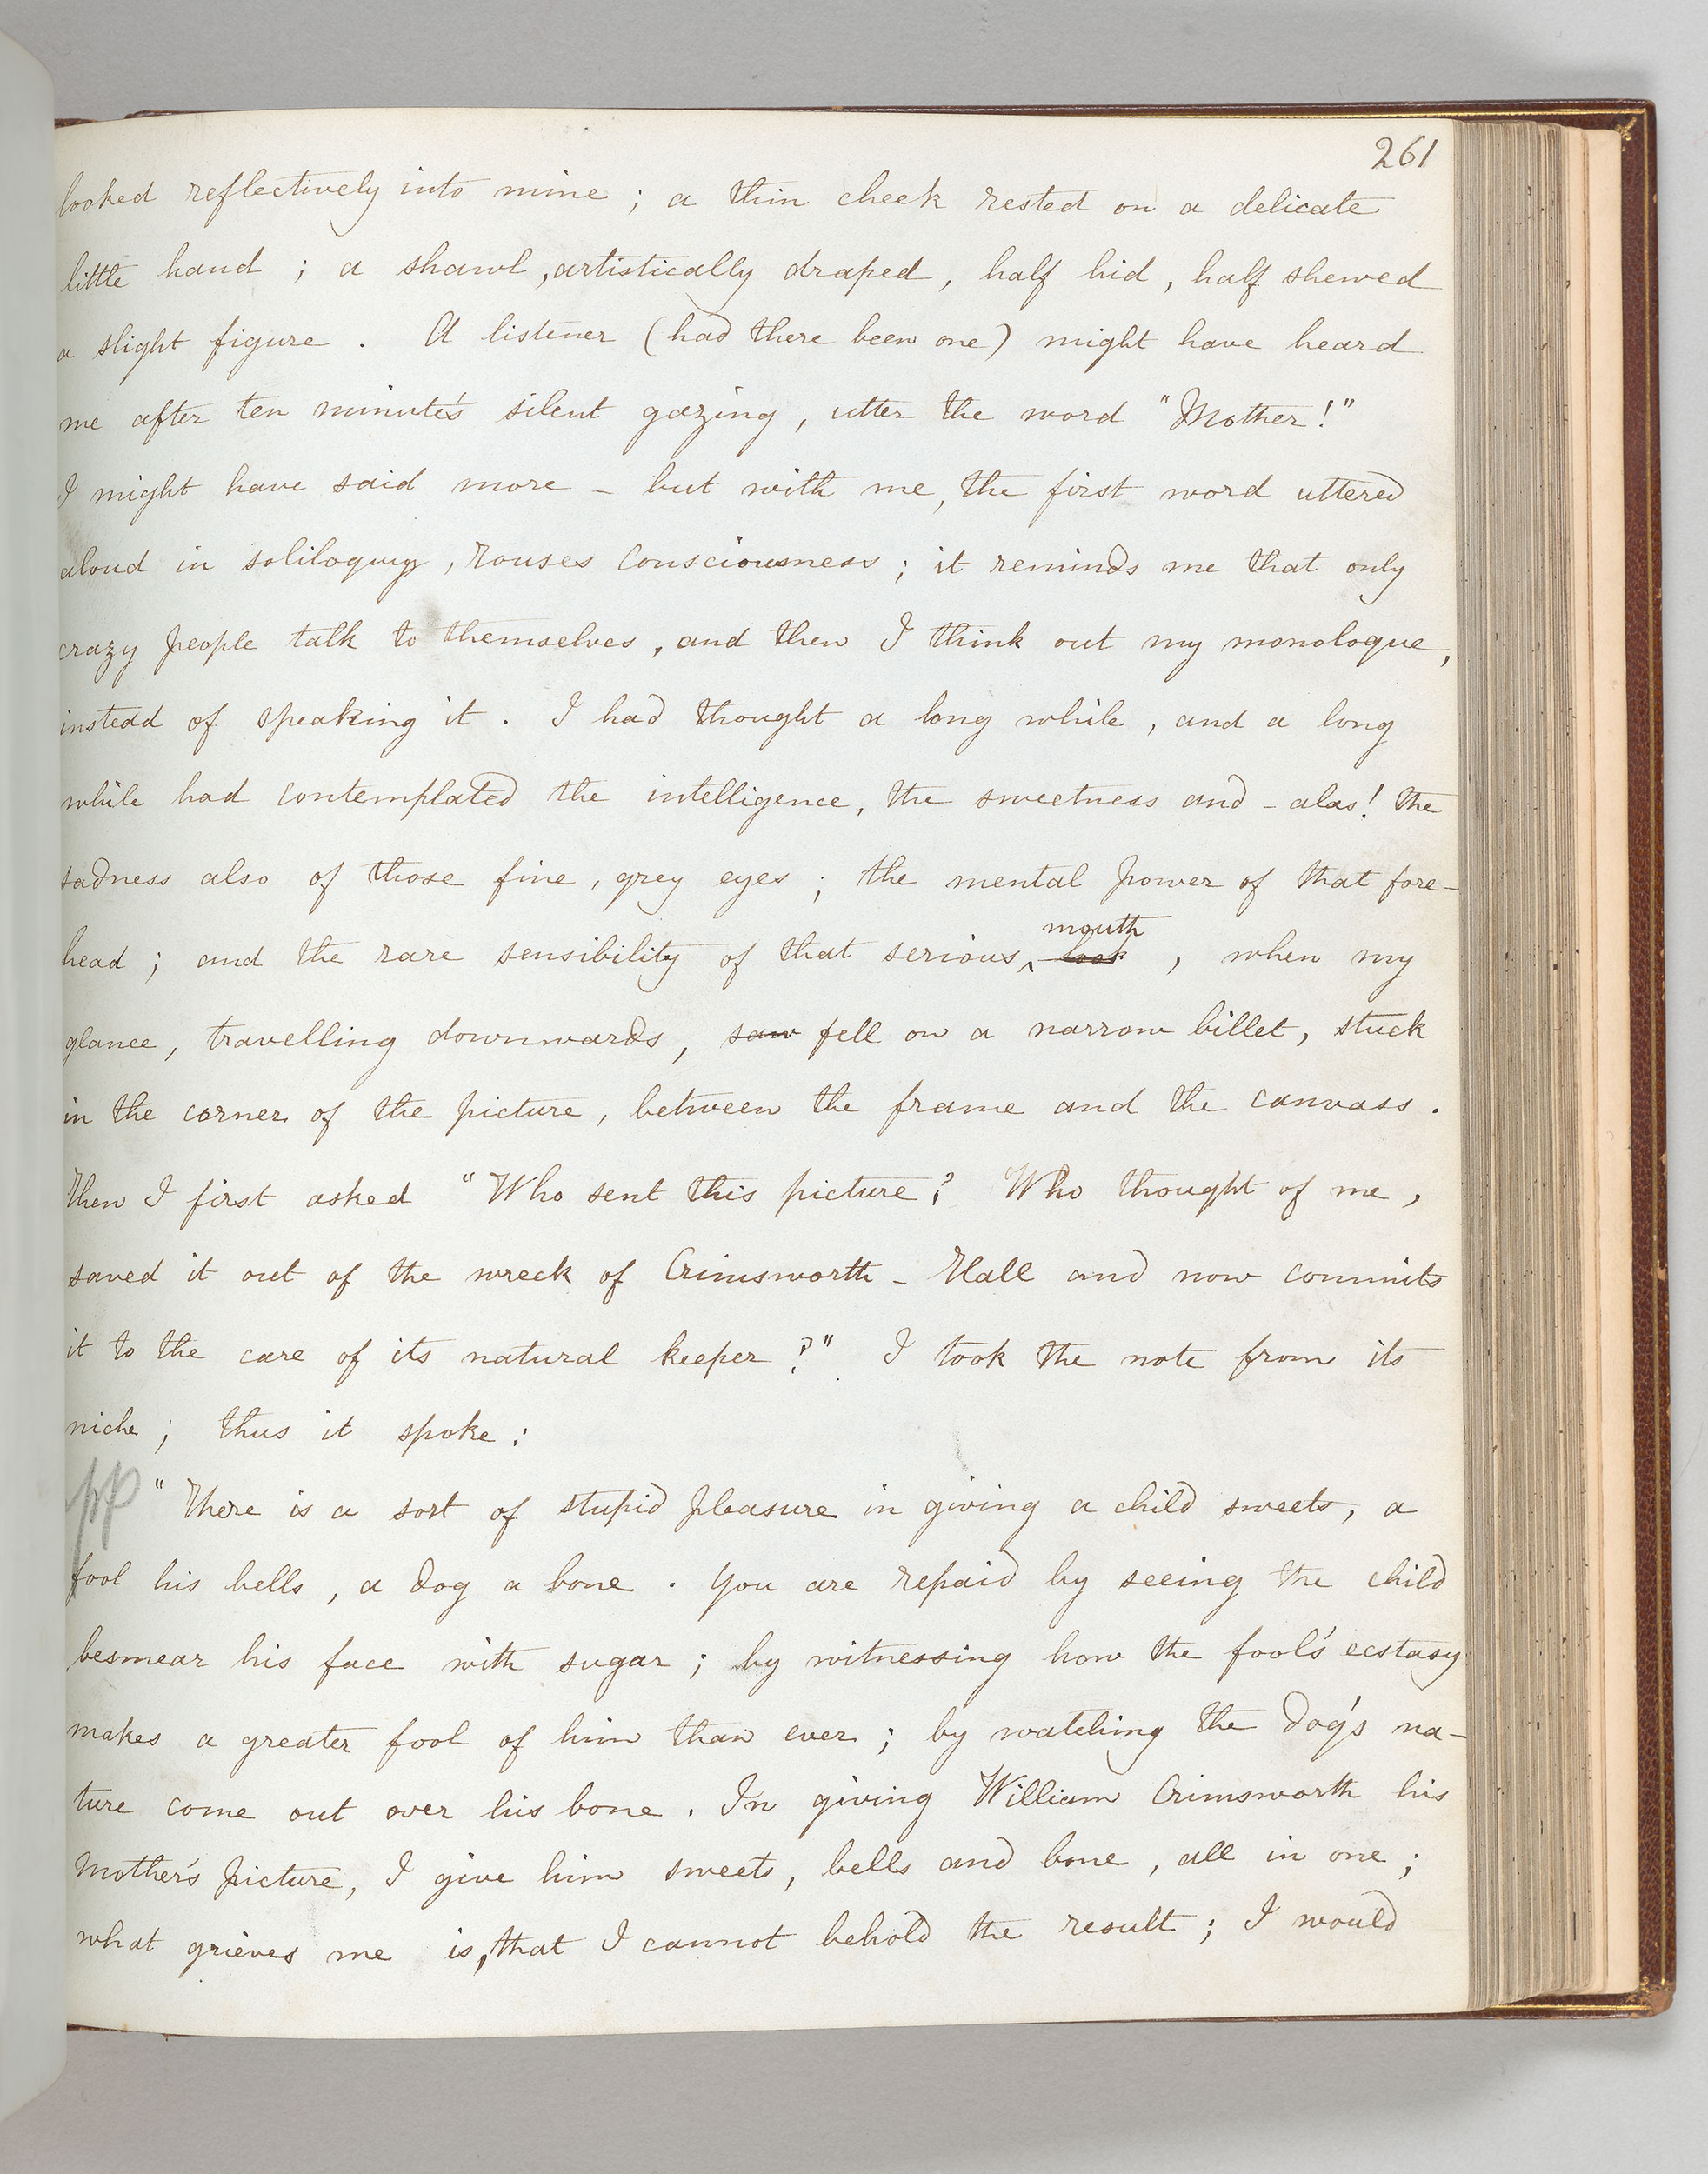 261
looked reflectively into mine ; a thin cheek rested on a delicate
little hand ; a shawl, artistically draped, half hid, half shewed
a slight figure. A listener (had there been one) might have heard
me after ten minute's silent gazing, utter the word "Mother!"
I might have said more - but with me, the first word uttered
aloud in soliloquy, rouses consciousness; it reminds me that only
crazy people talk to themselves, and then I think out my monologue,
instead of speaking it. I had thought a long while, and a long
while had contemplated the intelligence, the sweetness and - alas! the
sadness also of those fine, grey eyes; the mental power of that fore-
head; and the rare sensibility of that serious ^ mouth look, when my
glance, travelling downwards, saw fell on a narrow billet, stuck
in the corner of the picture, between the frame and the canvass.
Then I first asked "Who sent this picture? Who thought of me,
saved it out of the wreck of Crimsworth-Hall and now commits
it to the care of its natural keeper?" I took the note from its
niche; thus it spoke:
"There is a sort of stupid pleasure in giving a child sweets, a
fool his bells, a dog a bone. You are repaid by seeing the child
besmear his face with sugar; by witnessing how the fool's ecstasy
makes a greater fool of him than ever; by watching the dog's na-
ture come out over his bone. In giving William Crimsworth his
Mother's picture, I give him sweets, bells and bone, all in one;
what grieves me is, that I cannot behold the result; I would